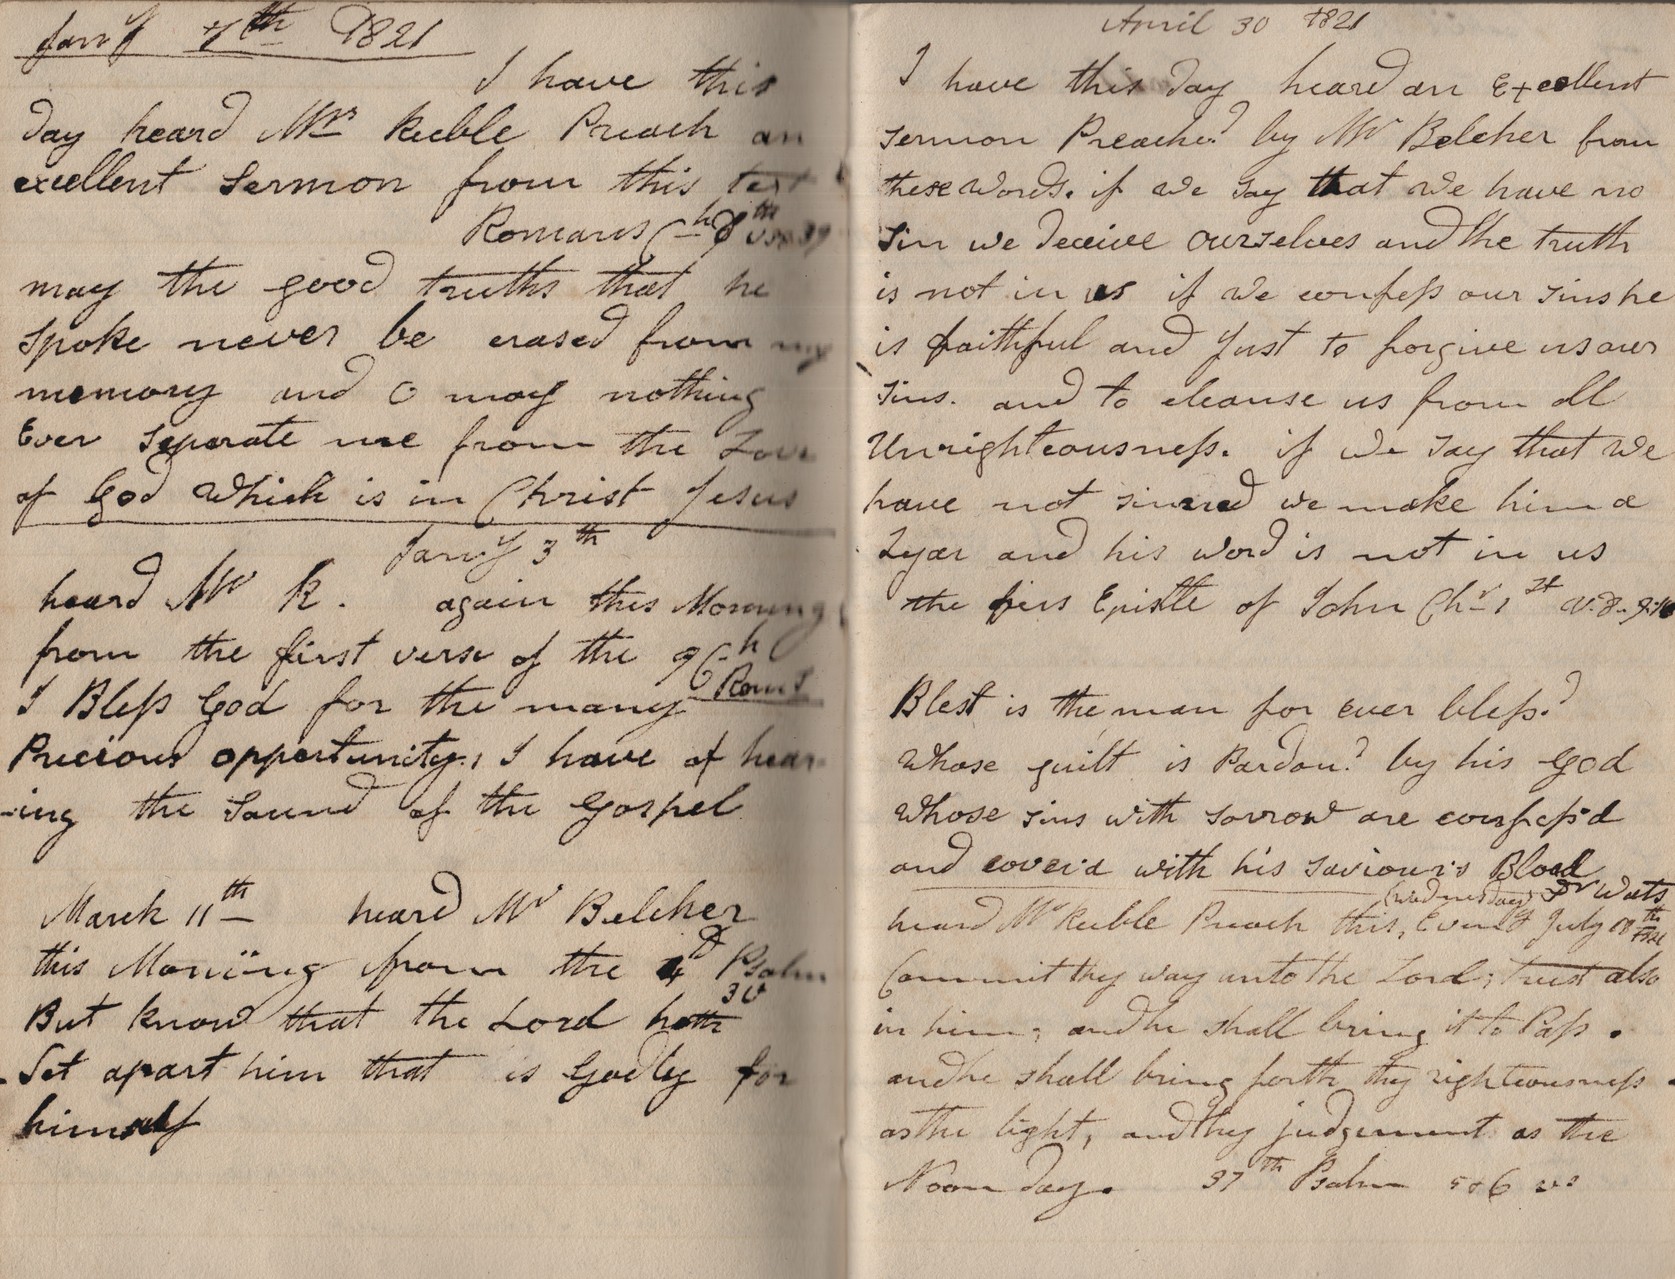 Jany 7th 1821
I have this
day heard Mr Keeble Preach an
excellent Sermon from this text
Romans Ch 8th vs 39
may the good truths that he
spoke never be erased from my
memory and O may nothing
Ever Separate me from the Love
of God Which is in Christ Jesus
Jany 3th
heard Mr K. again this Morning
from the first verse of the 9 Ch
Roms
I Bless God for the many
Precious opportunitys I have of hear
-ing the Sound of the Gospel
March 11th heard Mr Belcher
this Morning from the 4th Psalm
3 v
But know that the Lord hath
Set apart him that is Godly for
himself
April 30 1821
I have this day heard an Excellent
sermon Preached by Mr Belcher from
these Words. if we say that we have no
sin we deceive ourselves and the truth
is not in us if we confess our sins he
is faithful and Just to forgive us our
sins. and to cleanse us from all
Unrighteousness. if we say that we
have not sinned we make him a
Lyar and his word is not in us
the firs Epistle of John Chr 1st v. 8. 9. 10
Blest is the man for ever bless'd
Whose guilt is Pardon'd by his God
Whose sins with sorrow are confess'd
and cover'd with his saviour's Blood
Dr Wats
(Wednesday)
heard Mr Keeble Preach this, Eveng July 18th 1821
Commit thy way unto the Lord; trust also
in him; and he shall bring it to Pass.
and he shall bring forth thy righteousness
as the light, and thy judgement as the
Noon day. 37th Psalm 5 & 6 vs